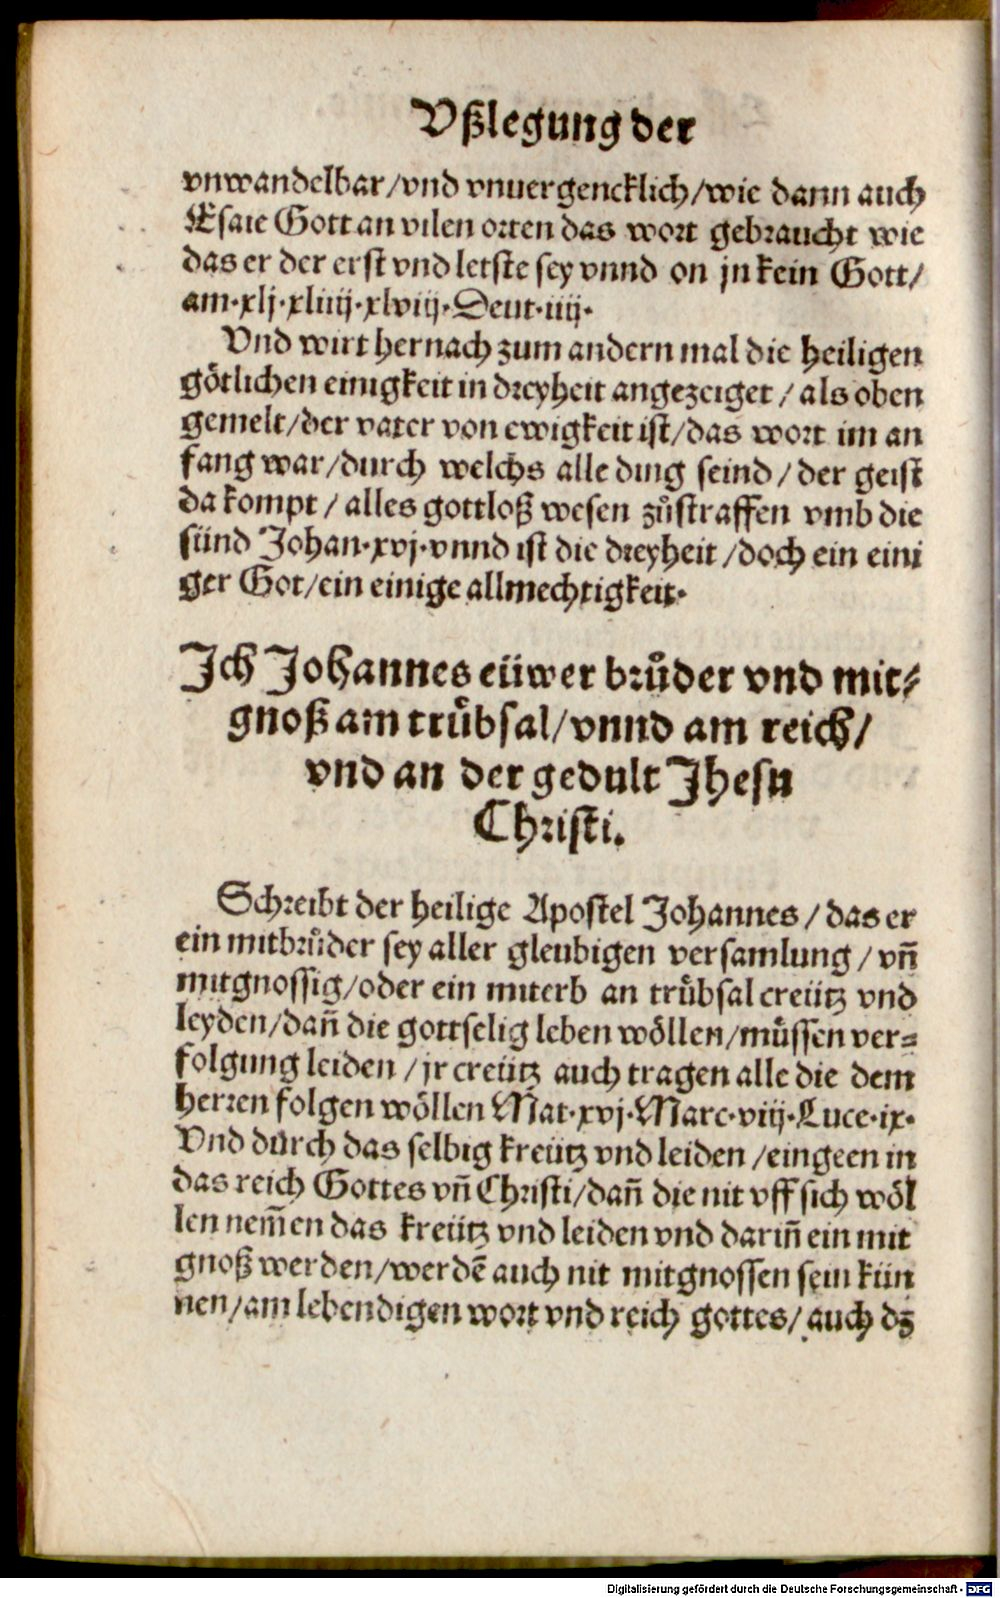 Vßlegung der
vnwandelbar/vnd vnuergencklich/wie dann auch
Esaie Gott an vilen orten das wort gebraucht wie
das er der erst vnd letste sey vnnd on jn kein Gott/
am.xlj.xliiij.xlviij.Deut.iiij.
Vnd wirt hernach zum andern mal die heiligen
götlichen einigkeit in dreyheit angezeiget / als oben
gemelt/der vater von ewigkeit ist/das wort im an
fang war/durch welchs alle ding seind / der geist
da kompt / alles gottloß wesen zůstraffen vmb die
sünd Johan.xvj.vnnd ist die dreyheit /doch ein eini
ger Got/ein einige allmechtigkeit.
Ich Johannes eüwer brůder vnd mit⸗
gnoß am trůbsal/vnnd am reich/
vnd an der gedult Jhesu
Christi.
Schreibt der heilige Apostel Johannes / das er
ein mitbrůder sey aller gleubigen versamlung / vñ
mitgnossig/oder ein miterb an trůbsal creütz vnd
leyden/dañ die gottselig leben wöllen/můssen ver⸗
folgung leiden / jr creütz auch tragen alle die dem
herren folgen wöllen Mat.xvj.Marc.viij.Luce.ix.
Vnd durch das selbig kreütz vnd leiden /eingeen in
das reich Gottes vñ Christi/dañ die nit vff sich wöl
len nem̄en das kreütz vnd leiden vnd dariñ ein mit
gnoß werden/werdē auch nit mitgnossen sein kün
nen/am lebendigen wort vnd reich gottes/ auch dz
Digitalisierung gefördert durch die Deutsche Forschungsgemeinschaft - DFG